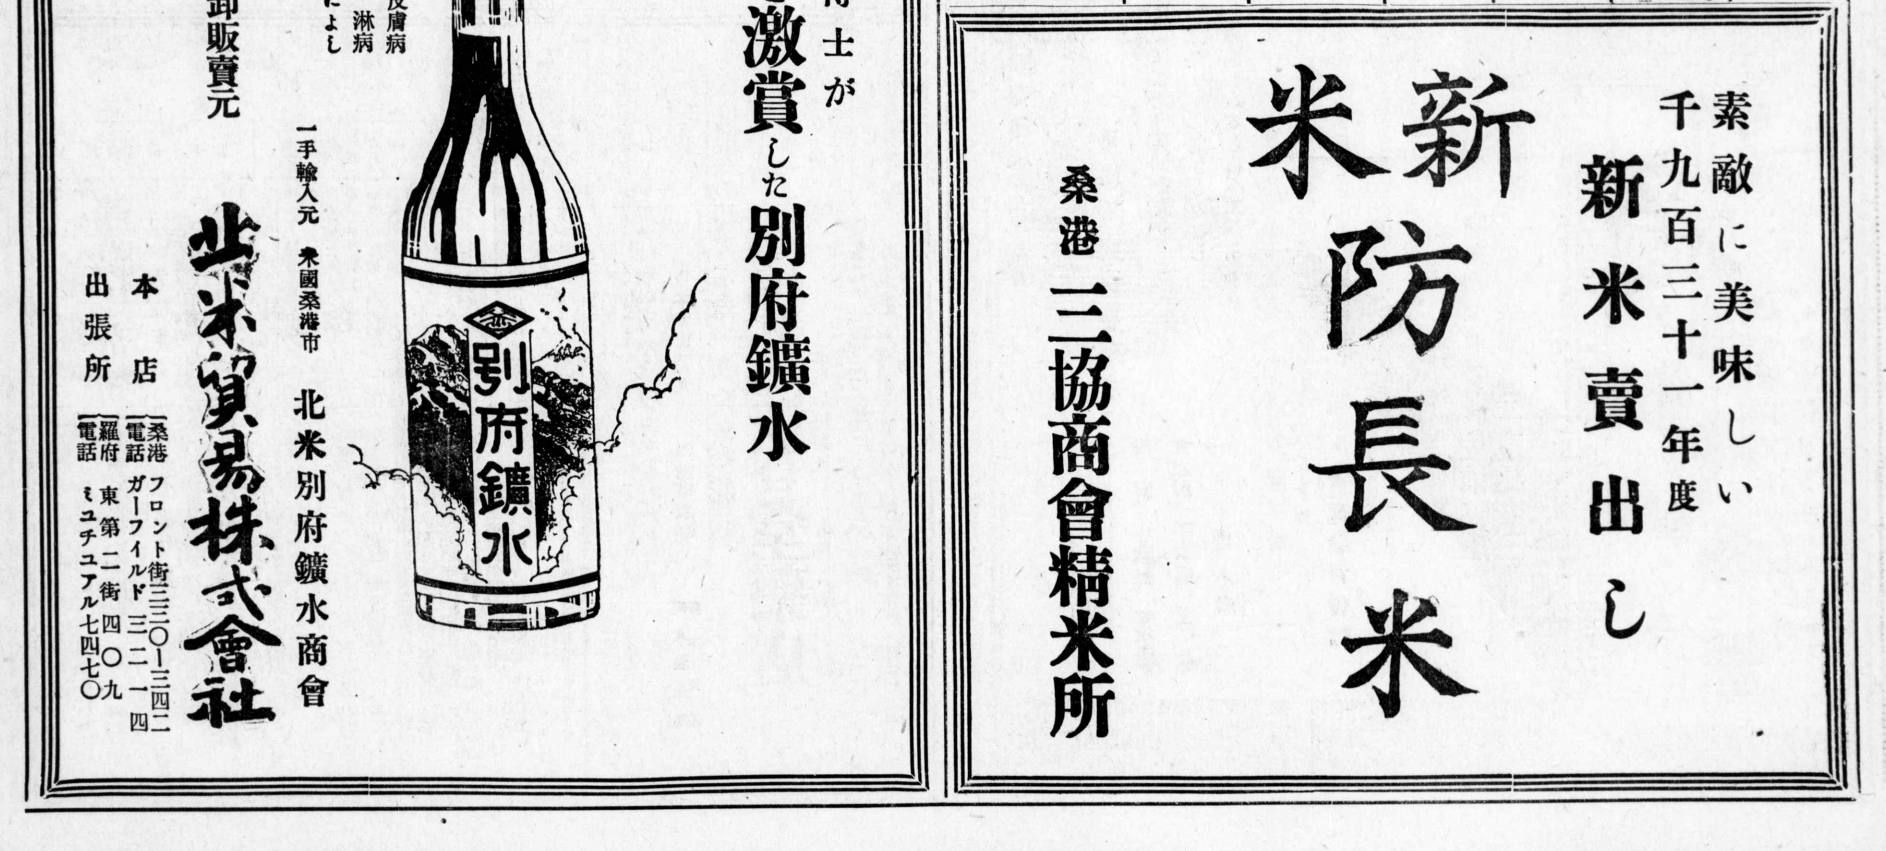 素敵に美味しい
千九百三十一年度
新米賣出し
新米
防長米
桑港 三協商會精米所
士が
激賞した別府鑛水
別府鑛水
皮膚病
淋病
によし
一手輸入元 米國桑港市 北米別府鑛水商會
卸販賣元 北米貿易株式會社
本店
桑港 フロント街三三〇—三四二
電話 ガーフイルド 三二一四
出張所
羅府 東第二街四〇九
電話 ミユチユアル七四七〇